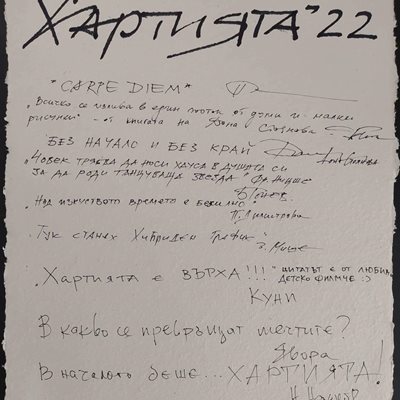 ХАРТИЯТА'22
"CARPE DIEM"
"Всичко се излива в един поток от думи и малки
рисунки" - от книгата на Яна Стоянова
"БЕЗ НАЧАЛО И БЕЗ КРАЙ
"Човек трябва да носи хауса в душата си
за да роди танцуваща звезда" Фр. Ницше
"Над изкуството времето е безсилно"
П. Димитрова
"Тук станах Хибриден График"
"Хартията е ВЪРХА!!!" ЦИТАТЪТ Е ОТ ЛЮБИМ
ДЕТСКО ФИЛМЧЕ :)
КУНИ
В какво се превръщат мечтите?
Явора
В началото беше... ХАРТИЯТА!